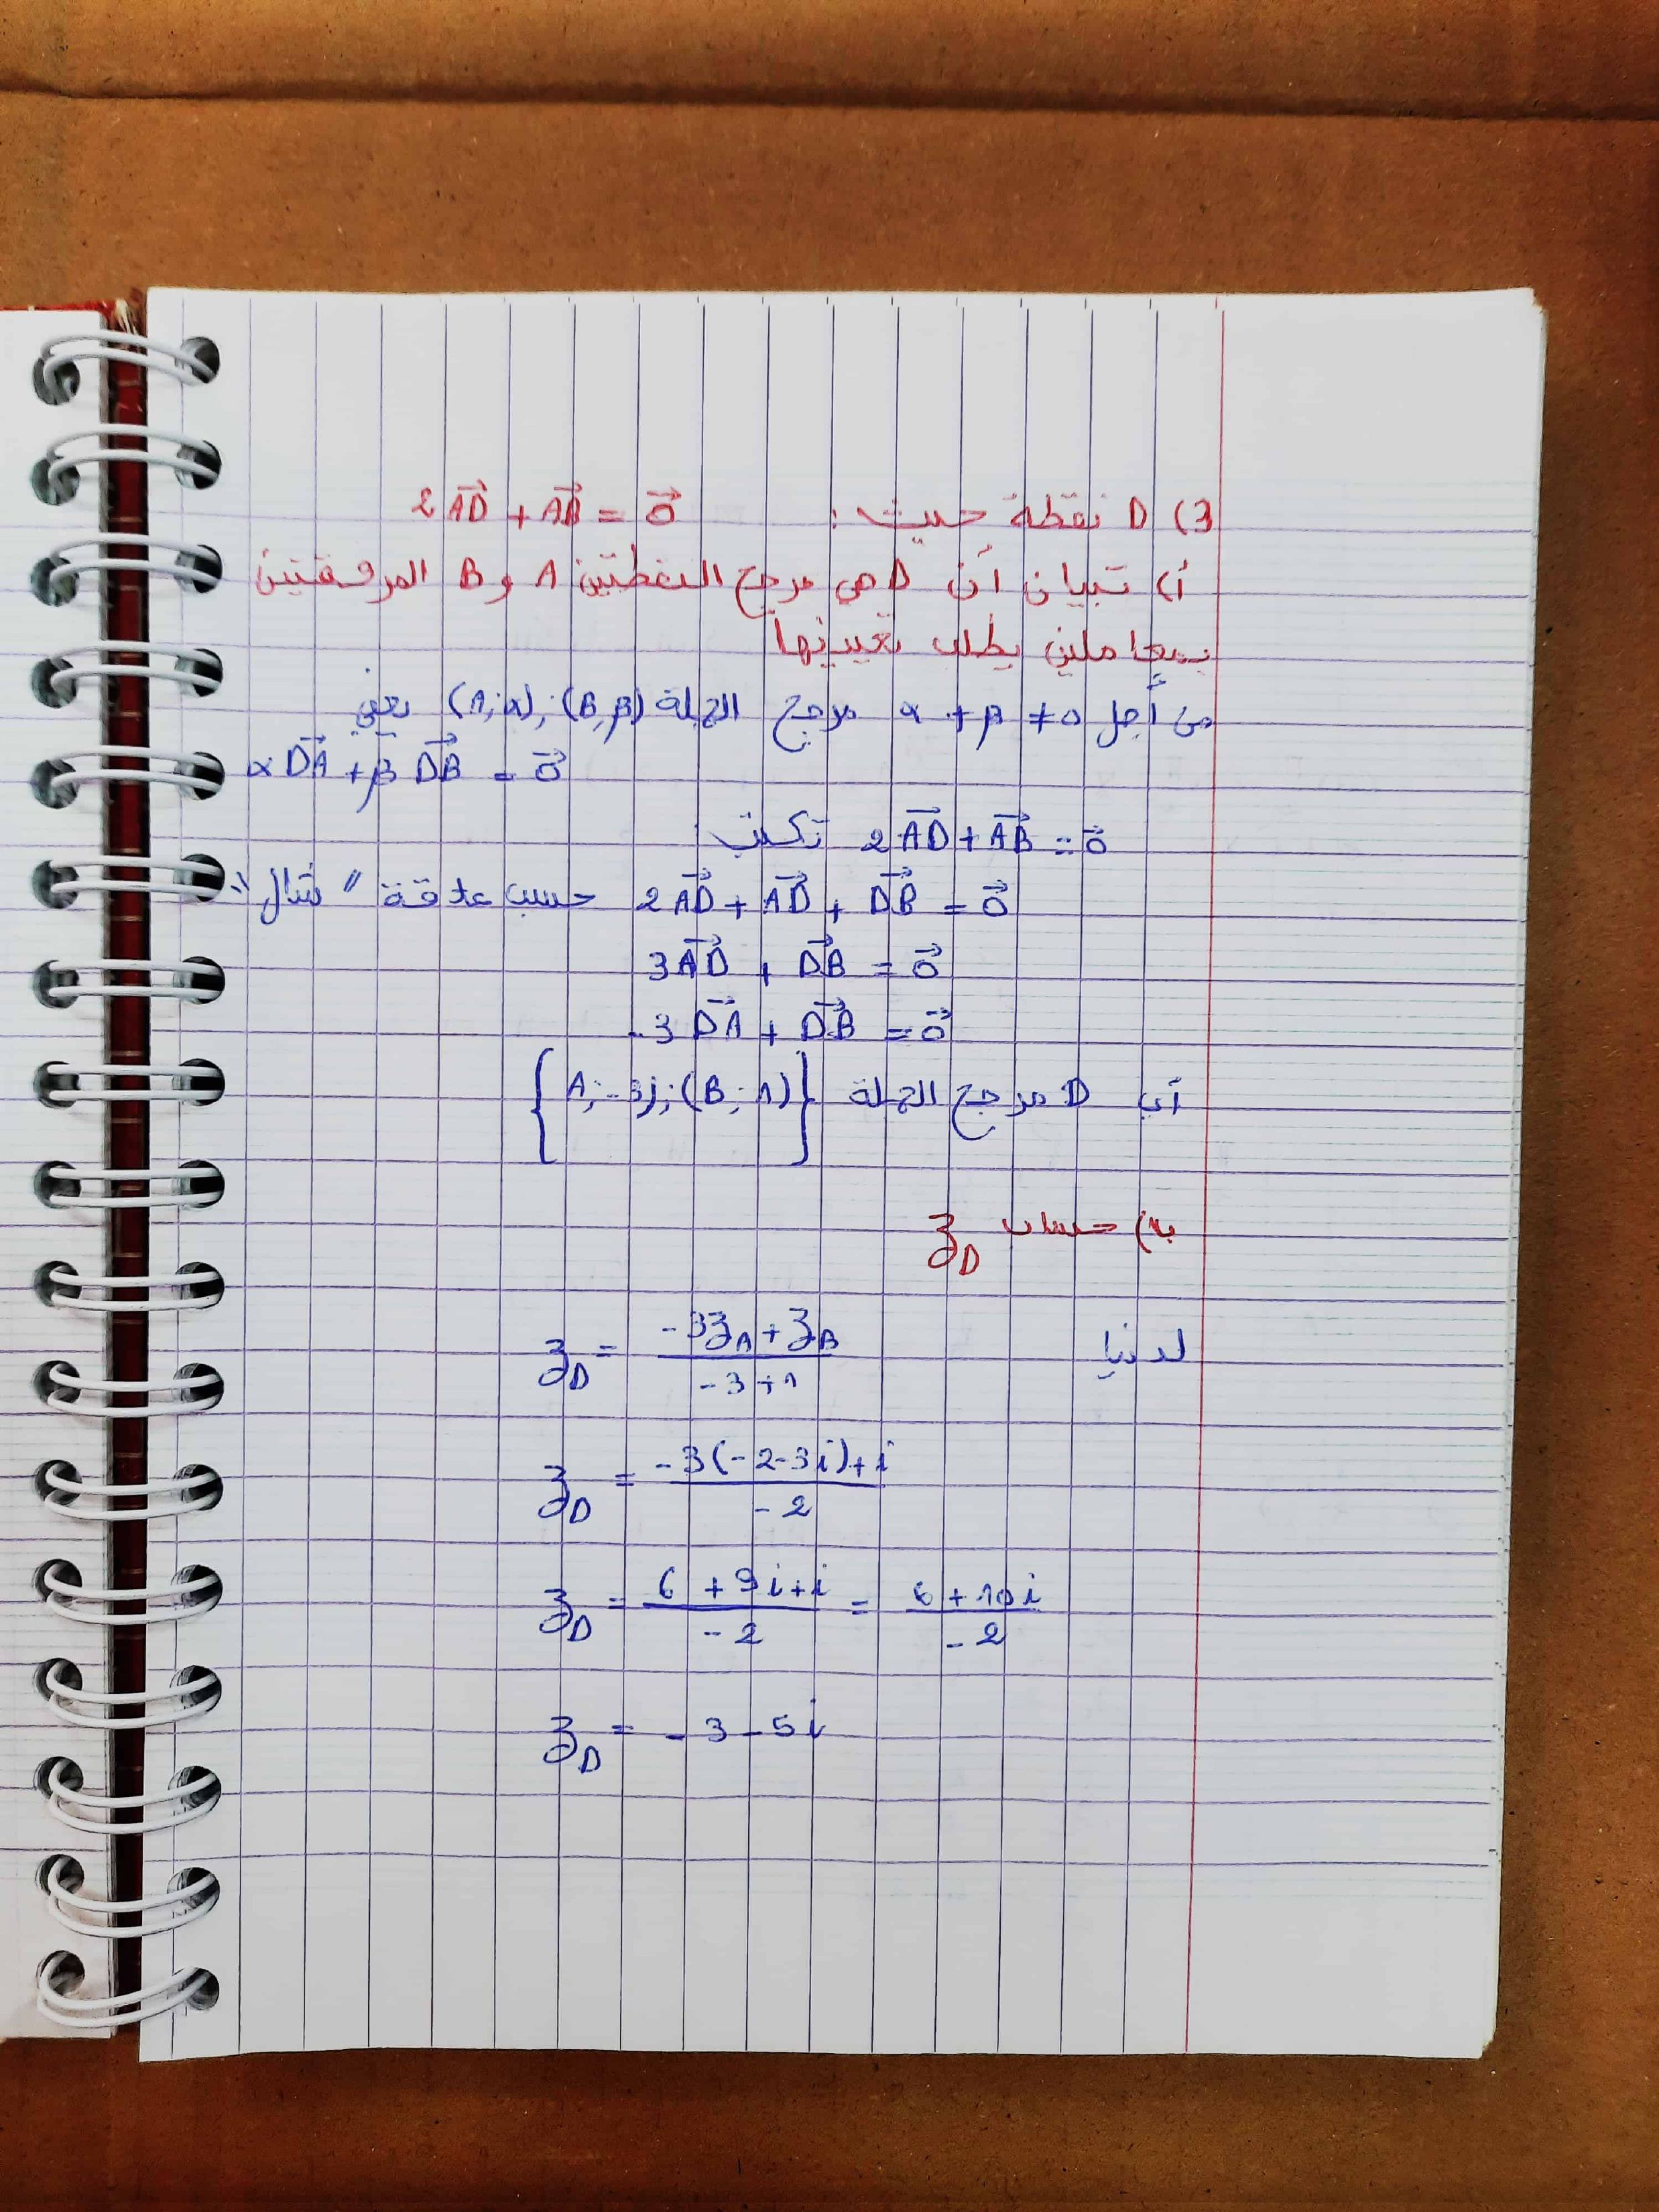 3) D نقطة حيث : 2AD⃗ + AB⃗ = 0⃗
أ) تبيان أن D هي مرجح النقطتين A و B المرفقتين
بمعاملين يطلب تعيينها
من أجل α + β ≠ 0 مرجح الجملة (A;α);(B,β) يعني
αDA⃗ + βDB⃗ = 0⃗
2AD⃗ + AB⃗ = 0⃗ تكتب
2AD⃗ + AD⃗ + DB⃗ = 0⃗ حسب علاقة "شال"
3AD⃗ + DB⃗ = 0⃗
-3DA⃗ + DB⃗ = 0⃗
أي D مرجح الجملة {A;-3);(B;1)}
ب) حساب z_D
لدنيا z_D = (-3z_A + z_B)/(-3+1)
z_D = (-3(-2-3i)+i)/(-2)
z_D = (6+9i+i)/(-2) = (6+10i)/(-2)
z_D = -3-5i